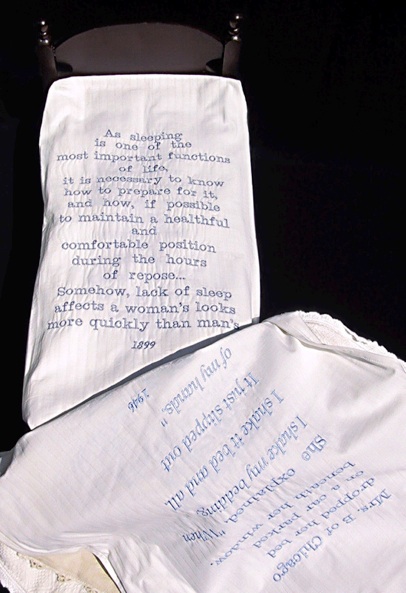 As sleeping
is one of the
most important functions
of life,
it is necessary to know
how to prepare for it,
and how, if possible
to maintain a healthful
and
comfortable position
during the hours
of repose...
Somehow, lack of sleep
affects a woman's looks
more quickly than man's
1899
Mrs. B of Chicago
dropped her bed
on a car parked
beneath her window.
She
explained, "When
I shake my bedding
I shake it bed and all
It just slipped out
of my hands."
1946